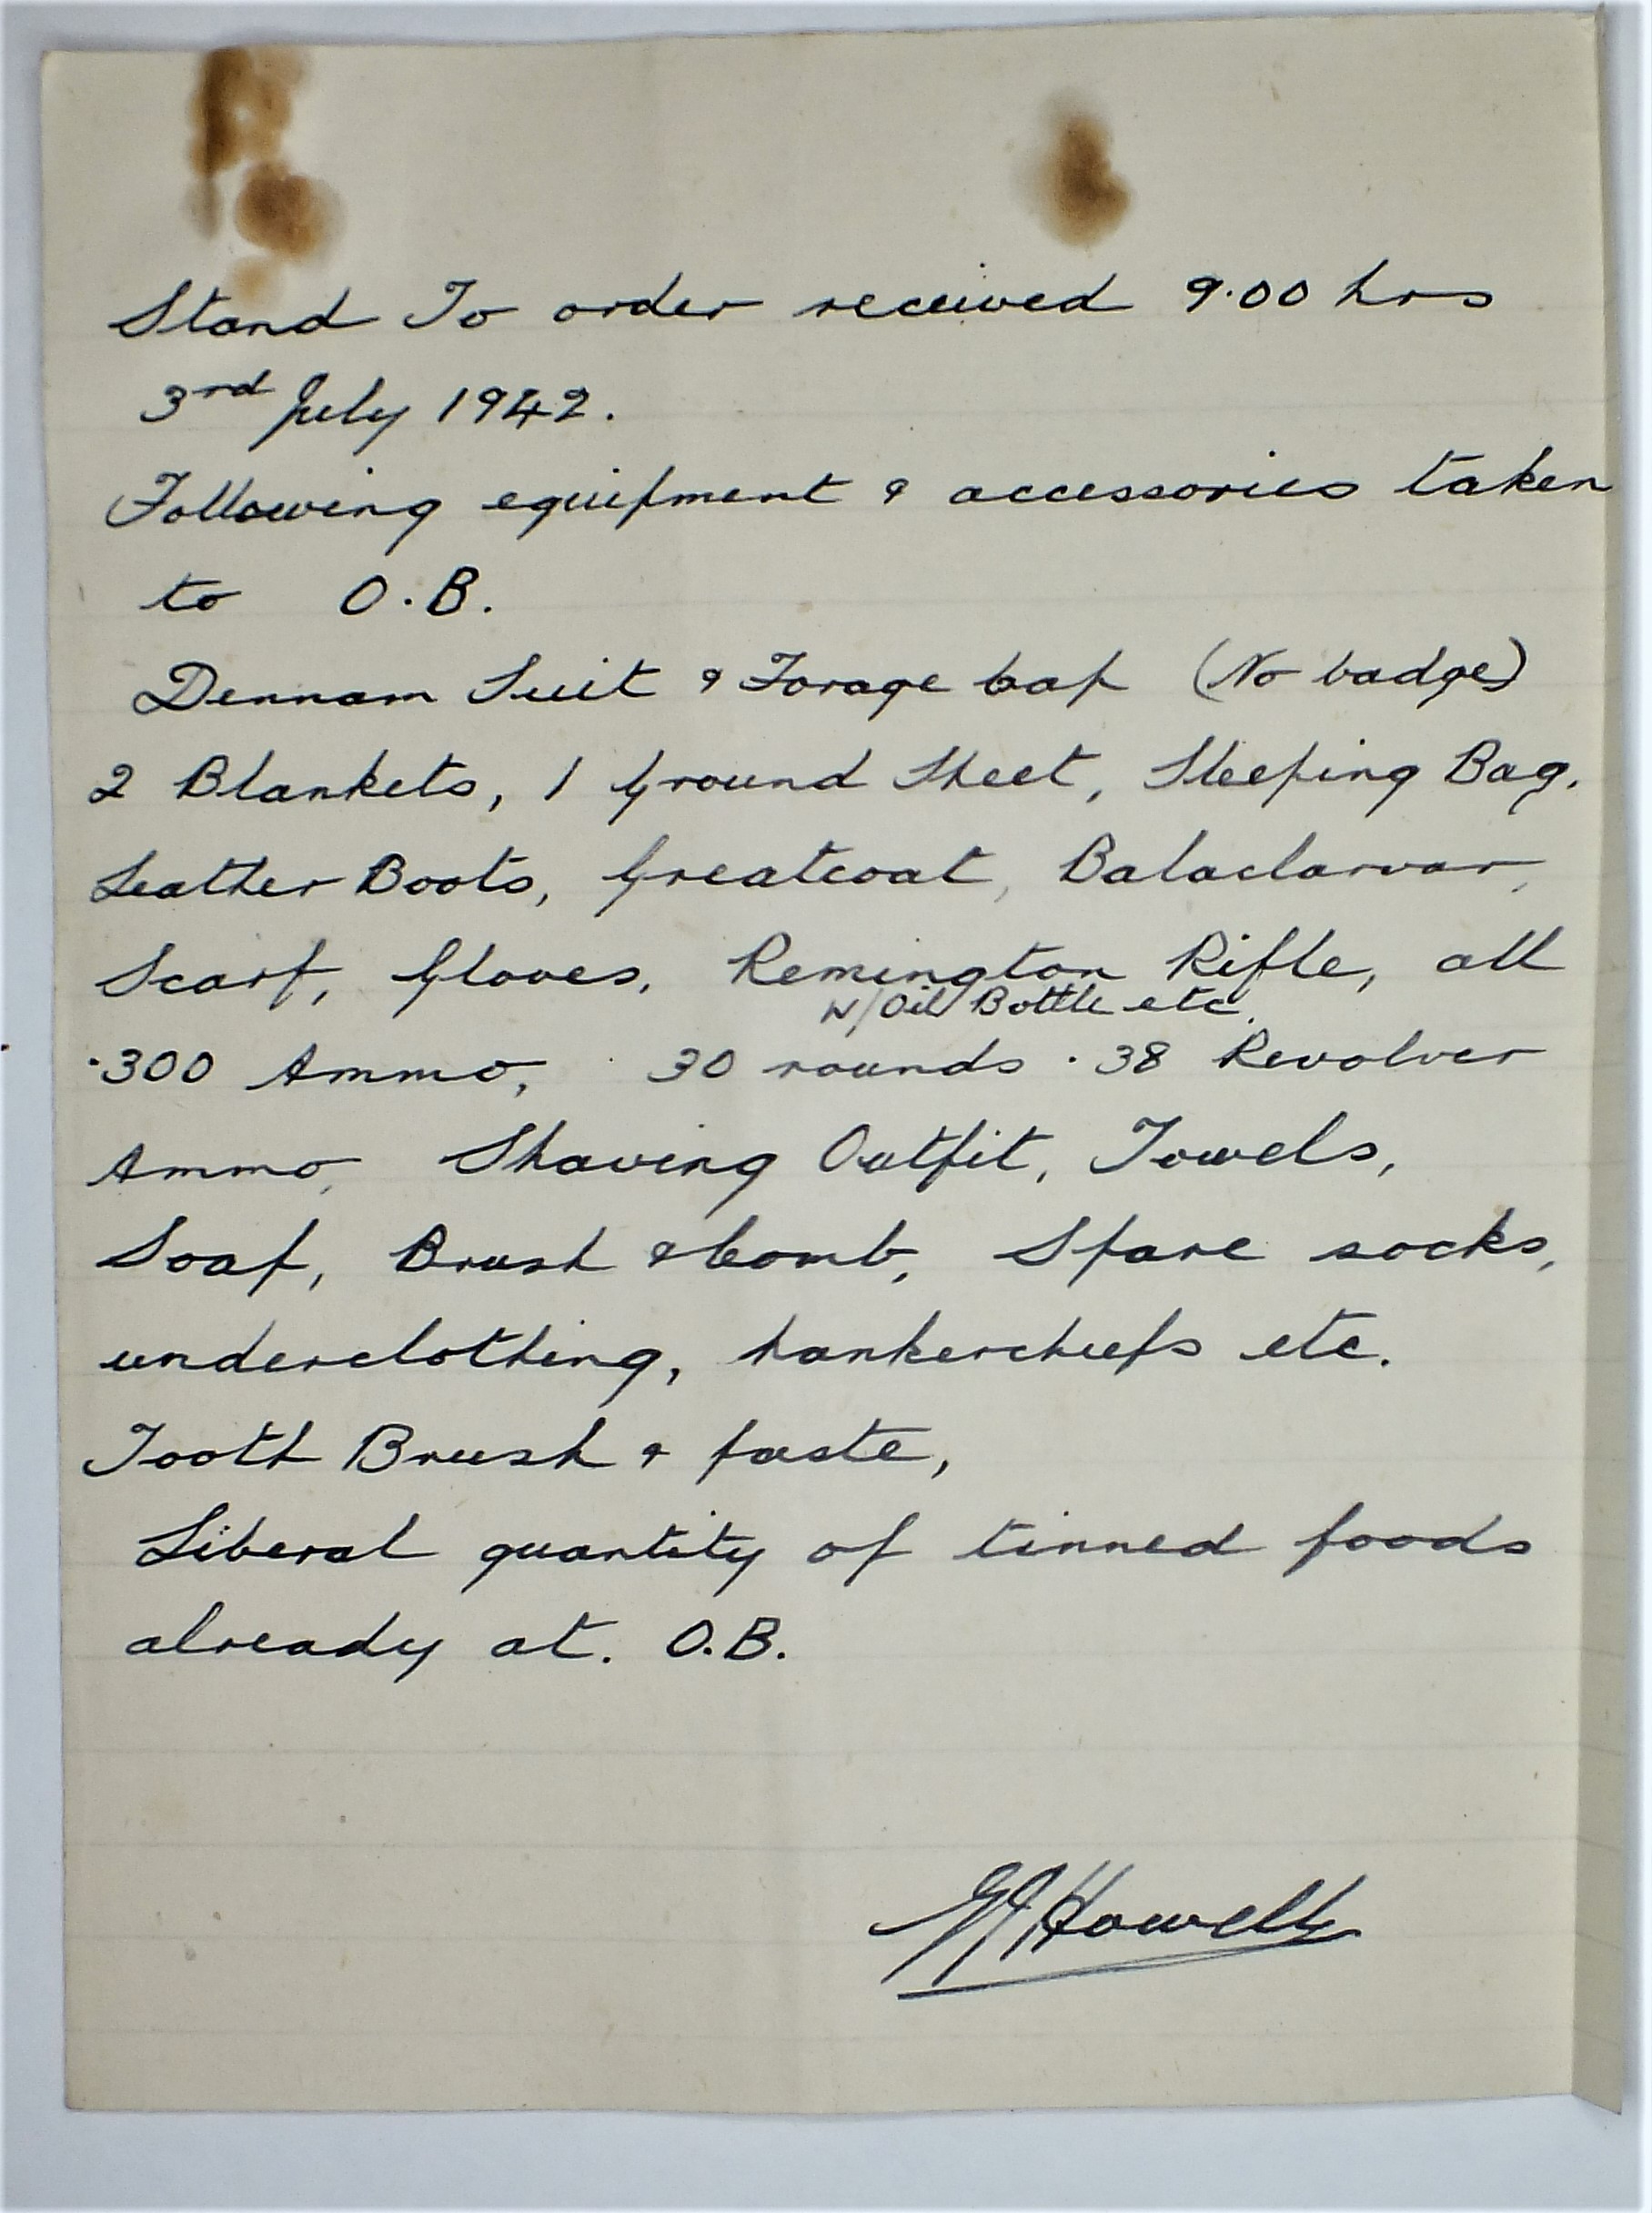 Stand To order received 9.00 hrs
3rd July 1942.
Following equipment & accessories taken
to O.B.
Dennam Suit & Forage Cap (No badge)
2 Blankets, 1 Ground Sheet, Sleeping Bag,
Leather Boots, Greatcoat, Balaclarvar,
Scarf, Gloves, Remington Rifle, all
w/ Oil Bottle etc.
.300 Ammo, 30 rounds .38 Revolver
Ammo, Shaving Outfit, Towels,
Soap, Brush & Comb, Spare socks,
underclothing, hankercheifs etc.
Tooth Brush & paste,
Liberal quantity of tinned foods
already at. O.B.
Howells